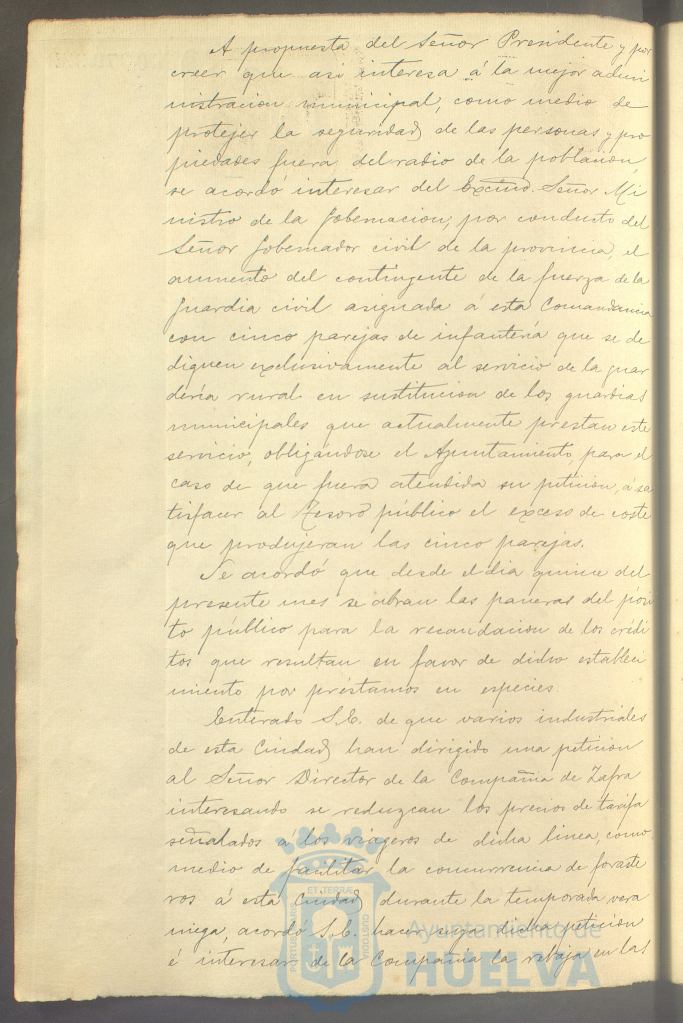 A propuesta del Señor Presidente y por
creer que asi interesa á la mejor admi
nistracion municipal, como medio de
protejer la seguridad de las personas y pro
piedades fuera del radio de la poblacion,
se acordó interesar del Excmo. Señor Mi
nistro de la Gobernacion, por conducto del
Señor Gobernador civil de la provincia, el
aumento del contingente de la fuerza de la
Guardia civil asignada á esta Comandancia
con cinco parejas de infantería que se de
diquen exclusivamente al servicio de la guar
dería rural en sustitucion de los guardias
municipales que actualmente prestan este
servicio, obligándose el Ayuntamiento, para el
caso de que fuera atendida su peticion, á sa
tisfacer al Tesoro público el exceso de coste
que produjeran las cinco parejas.
Se acordó que desde el dia quince del
presente mes se abran las paneras del pósi
to público para la recaudacion de los crédi
tos que resultan en favor de dicho estableci
miento por préstamos en especies.
Enterado S.E. de que varios industriales
de esta Ciudad han dirigido una peticion
al Señor Director de la Compañia de Zafra
interesando se reduzcan los precios de tarifa
señalados á los viageros de dicha linea, como
medio de facilitar la concurrencia de foraste
ros á esta Ciudad durante la temporada vera
niega, acordó S.E. hacer suya dicha peticion
é interesar de la Compañia la rebaja en las
PORTUS MARIS
ET TERRÆ
CUSTODIA
Ayuntamiento de
HUELVA